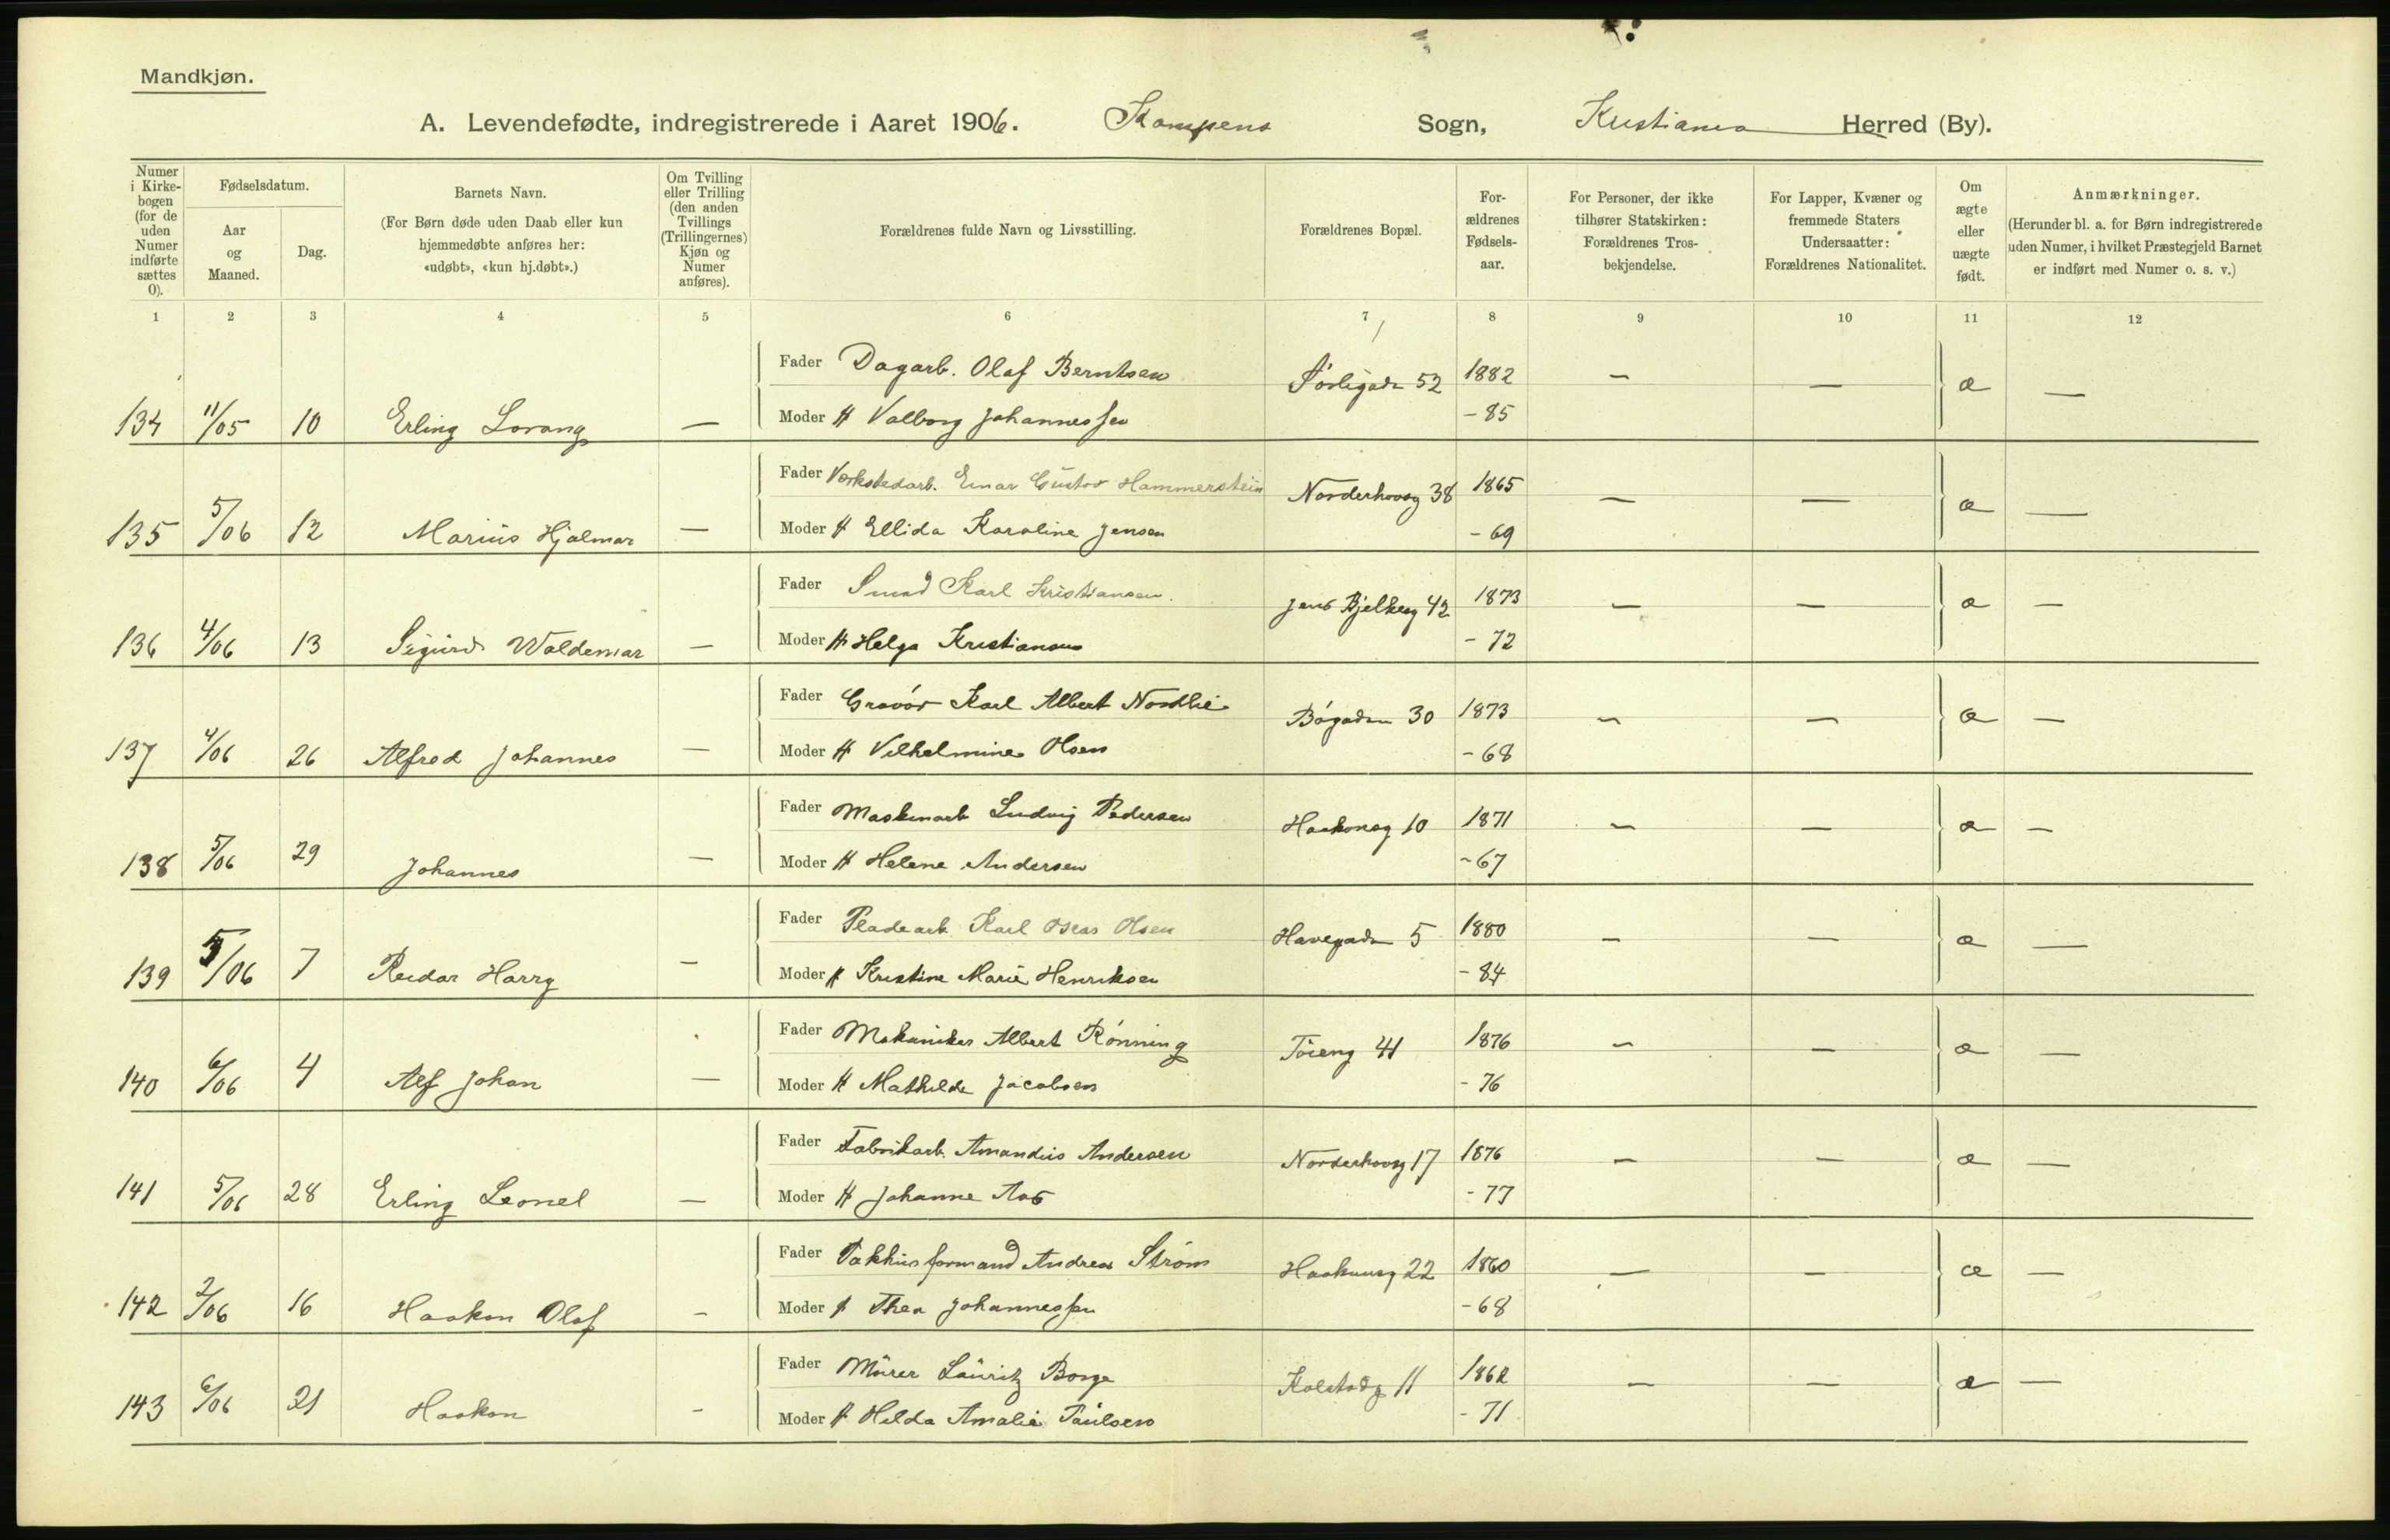 Mandkjøn.
A. Levendefødte, indregistrerede i Aaret 1906. Kampens Sogn, Kristiania Herred (By).
Numer i Kirkebogen (for de uden Numer indførte sættes 0).
Fødselsdatum.
Aar og Maaned.
Dag.
Barnets Navn.
(For Børn døde uden Daab eller kun hjemmedøbte anføres her: «udøbt», «kun hj.døbt».)
Om Tvilling eller Trilling (den anden Tvillings (Trillingernes) Kjøn og Numer anføres).
Forældrenes fulde Navn og Livsstilling.
Forældrenes Bopæl.
Forældrenes Fødselsaar.
For Personer, der ikke tilhører Statskirken: Forældrenes Trosbekjendelse.
For Lapper, Kvæner og fremmede Staters Undersaatter: Forældrenes Nationalitet.
Om ægte eller uægte født.
Anmærkninger.
(Herunder bl. a. for Børn indregistrerede uden Numer, i hvilket Præstegjeld Barnet er indført med Numer o. s. v.)
1 2 3 4 5 6 7 8 9 10 11 12
Fader Dagarb. Olaf Berntsen Sörligade 52 1882 — — æ —
134 11/05 10 Erling Lorang — Moder H Valborg Johannessen - 85
Fader Værkstedarb. Einar Gustav Hammerstein Norderhovsg 38 1865 — — æ —
135 5/06 12 Marius Hjalmar — Moder H Ellida Karoline Jensen - 69
Fader Smed Karl Kristiansen. Jens Bjelkesg 42 1873 — — æ —
136 4/06 13 Sigurd Waldemar — Moder H Helga Kristiansen - 72
Fader Gravör Karl Albert Nordlie Bögaden 30 1873 — — æ —
137 4/06 26 Alfred Johannes — Moder H Vilhelmine Olsen - 68
Fader Maskinarb Ludvig Pedersen Haakonsg 10 1871 — — æ —
138 5/06 29 Johannes — Moder H Helene Andersen - 67
Fader Pladearb. Karl Oscar Olsen Havegaden 5 1880 — — æ —
139 5/06 7 Reidar Harry — Moder H Kristine Marie Henriksen - 84
Fader Mekaniker Albert Rönning Töieng 41 1876 — — æ —
140 6/06 4 Alf Johan — Moder H Mathilde Jacobsen - 76
Fader Fabrikarb. Amandus Andersen Norderhovsg 17 1876 — — æ —
141 5/06 28 Erling Leonel — Moder H Johanne Aas - 77
Fader Pakhusformand Andreas Ström Haakonsg 22 1860 — — æ —
142 2/06 16 Haakon Olaf — Moder H Thea Johannessen - 68
Fader Murer Lauritz Borge Kolstadg 11 1862 — — æ —
143 6/06 21 Haakon — Moder H Hilda Amalie Paulsen - 71